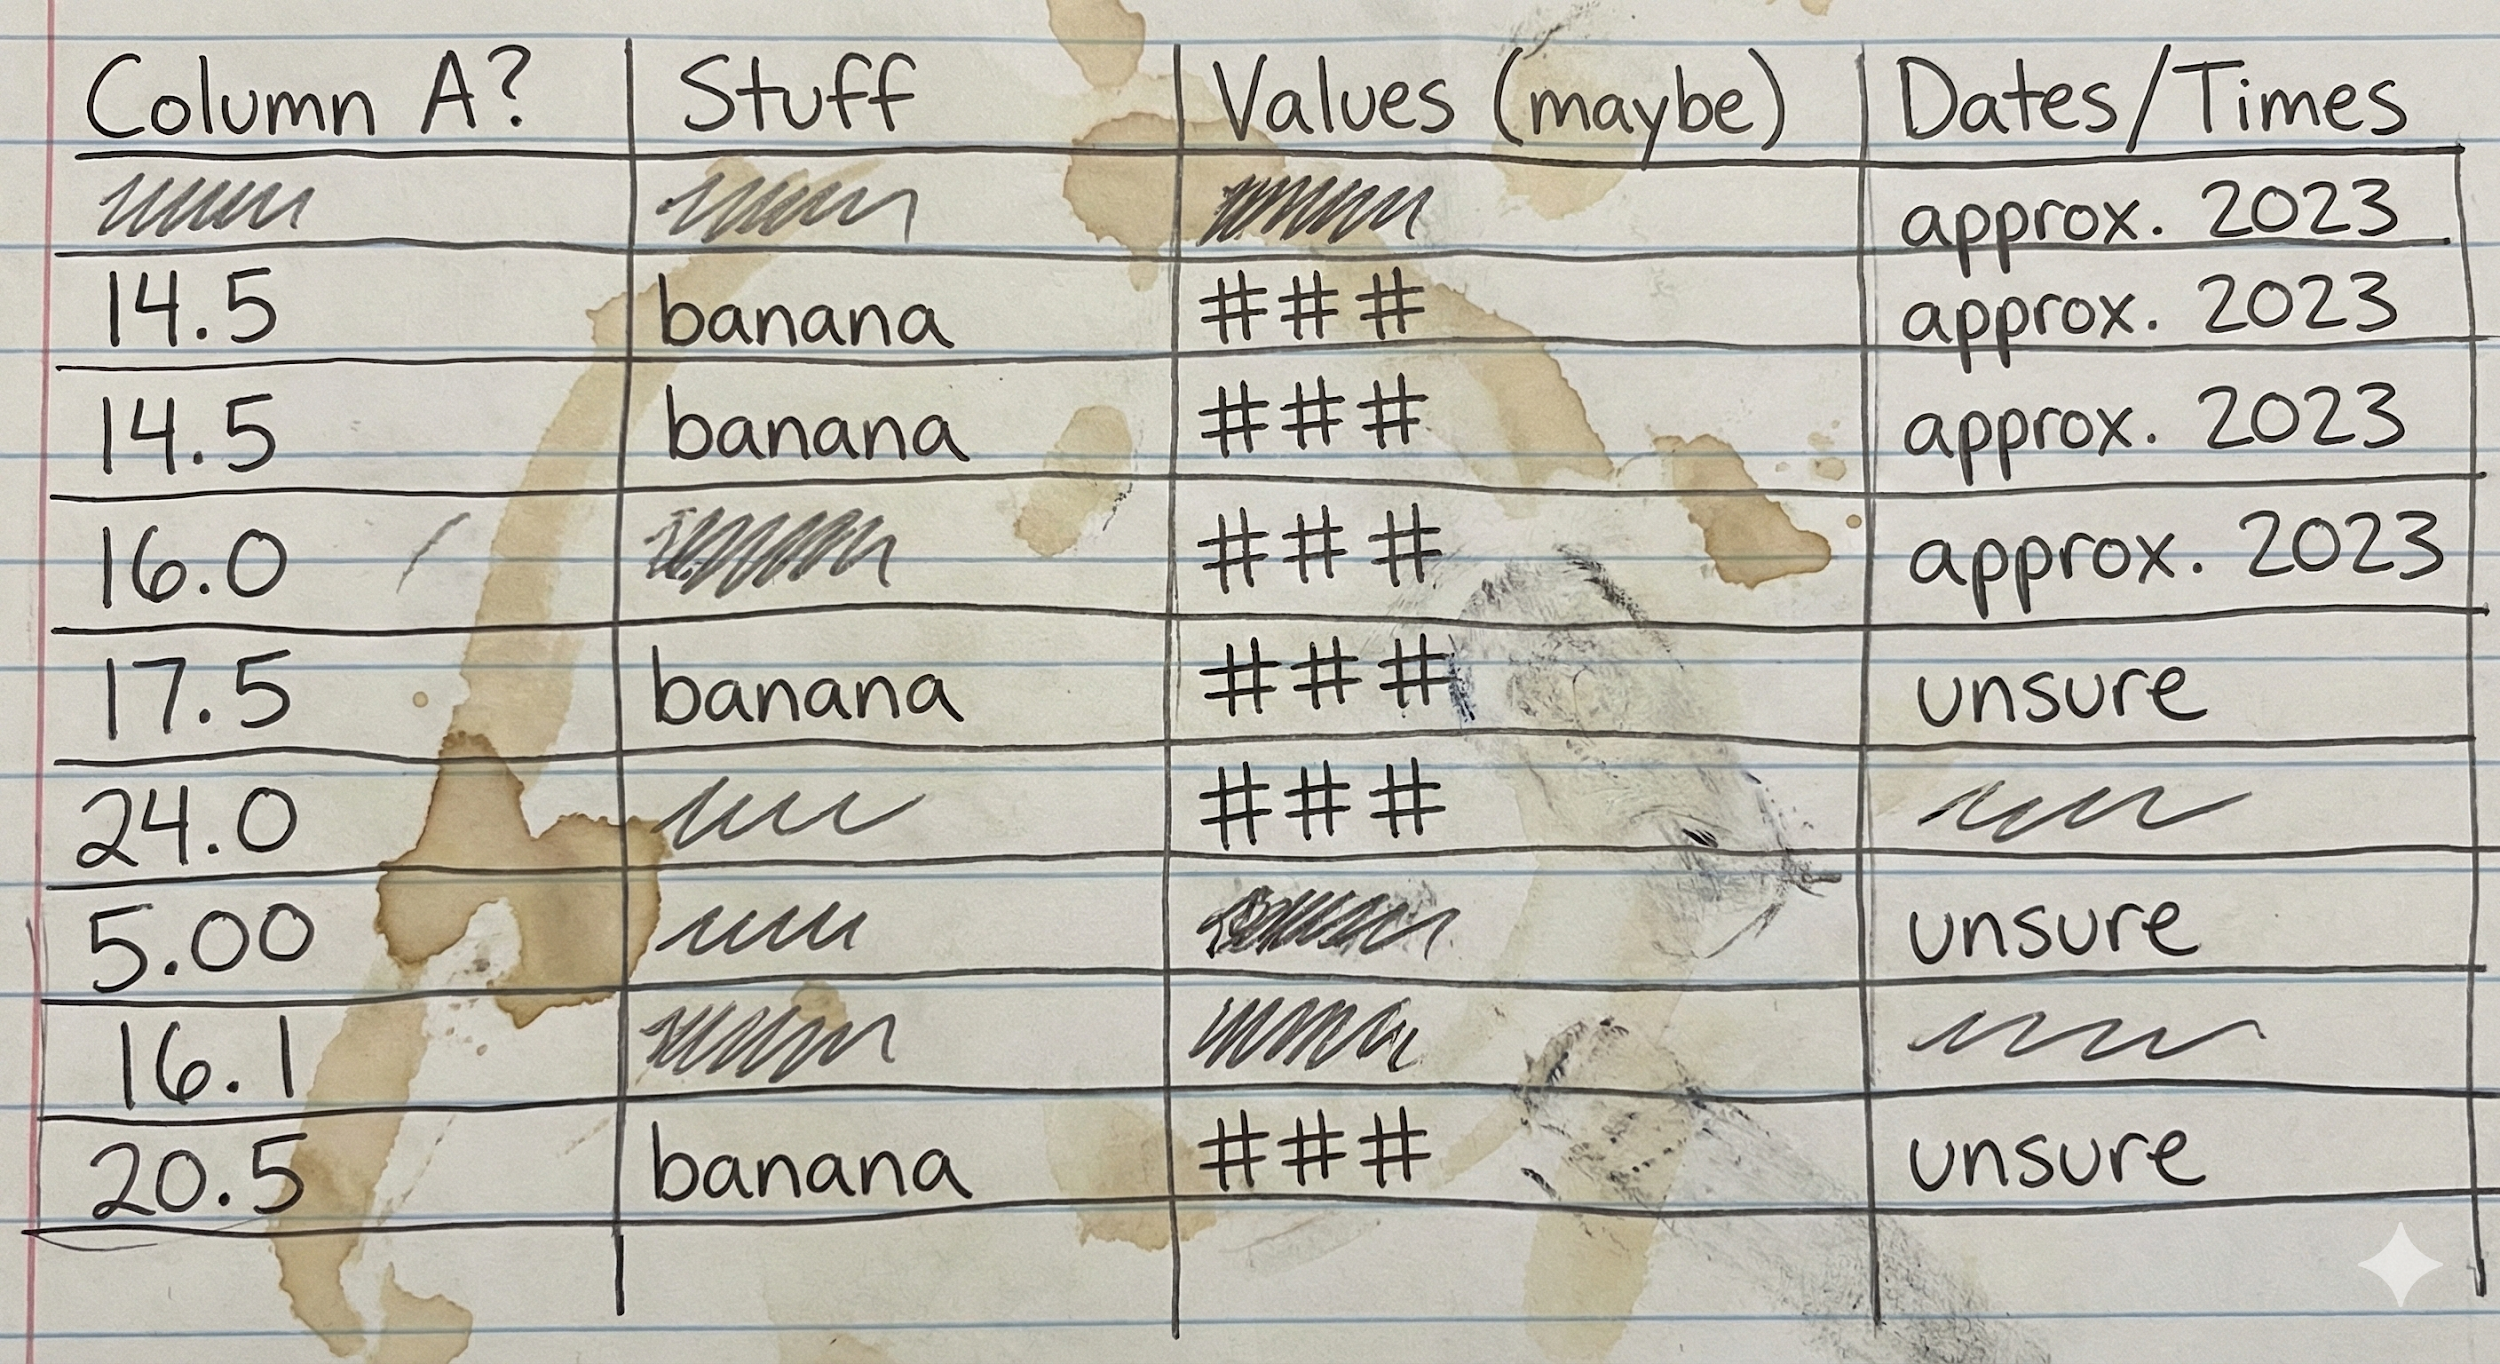 Column A? Stuff Values (maybe) Dates/Times
approx. 2023
14.5 banana ### approx. 2023
14.5 banana ### approx. 2023
16.0 ### approx. 2023
17.5 banana ### unsure
24.0 ###
5.00 unsure
16.1
20.5 banana ### unsure